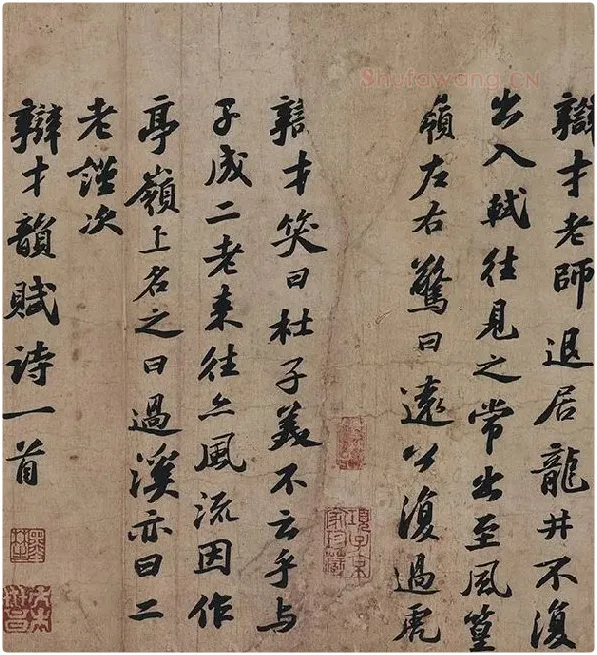 Shufawang.CN
辯才老師退居龍井不復
出入軾往見之常出至風篁
嶺左右驚曰遠公復過虎
辯才笑曰杜子美不云乎与
子成二老來往亦風流因作
亭嶺上名之曰過溪亦曰二
老謹次
辯才韻賦詩一首
項子京
家珍藏